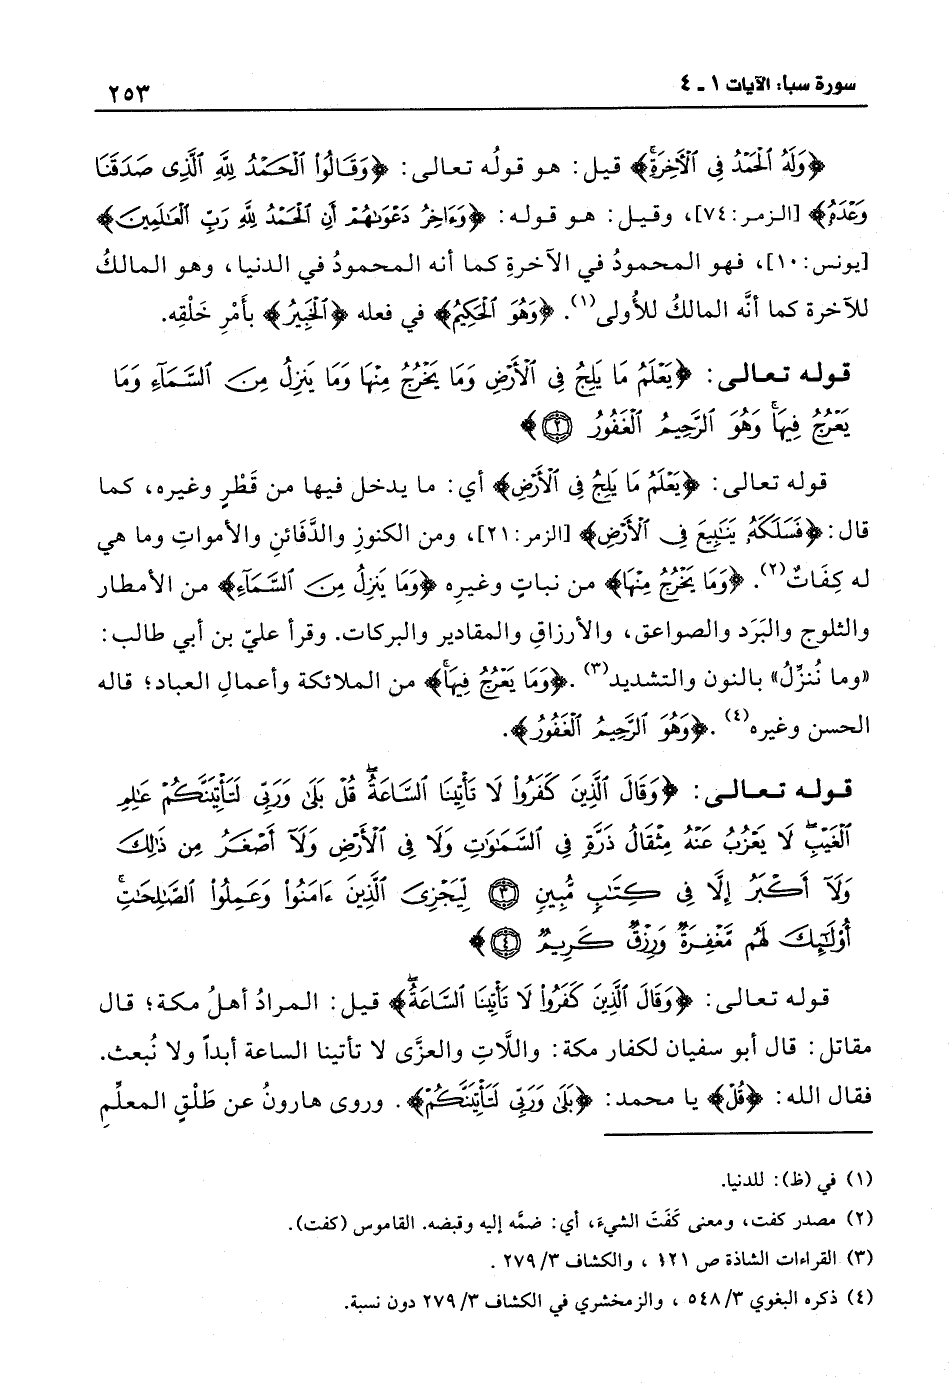 سورة سبأ: الآيات ١ ـ ٤
٢٥٣
﴿وَلَهُ الْحَمْدُ فِي الْآخِرَةِ﴾ قيل: هو قولُه تعالى: ﴿وَقَالُوا الْحَمْدُ لِلَّهِ الَّذِي صَدَقَنَا
وَعْدَهُ﴾ [الزمر:٧٤]، وقيل: هو قوله: ﴿وَءَاخِرُ دَعْوَاهُمْ أَنِ الْحَمْدُ لِلَّهِ رَبِّ الْعَالَمِينَ﴾
[يونس:١٠]، فهو المحمودُ في الآخرةِ كما أنه المحمودُ في الدنيا، وهو المالكُ
للآخرة كما أنَّه المالكُ للأُولى(١). ﴿وَهُوَ الْحَكِيمُ﴾ في فعله ﴿الْخَبِيرُ﴾ بأَمْرِ خَلْقِه.
قوله تعالى: ﴿يَعْلَمُ مَا يَلِجُ فِي الْأَرْضِ وَمَا يَخْرُجُ مِنْهَا وَمَا يَنزِلُ مِنَ السَّمَاءِ وَمَا
يَعْرُجُ فِيهَا وَهُوَ الرَّحِيمُ الْغَفُورُ ٢﴾
قوله تعالى: ﴿يَعْلَمُ مَا يَلِجُ فِي الْأَرْضِ﴾ أي: ما يدخل فيها من قَطْرٍ وغيره، كما
قال: ﴿فَسَلَكَهُ يَنَابِيعَ فِي الْأَرْضِ﴾ [الزمر:٢١]، ومن الكنوزِ والدَّفائنِ والأمواتِ وما هي
له كِفَاتٌ(٢). ﴿وَمَا يَخْرُجُ مِنْهَا﴾ من نباتٍ وغيرِه ﴿وَمَا يَنزِلُ مِنَ السَّمَاءِ﴾ من الأمطار
والثلوج والبَرَد والصواعق، والأرزاقِ والمقادير والبركات. وقرأ عليّ بن أبي طالب:
«وما نُنزِّلُ» بالنون والتشديد(٣). ﴿وَمَا يَعْرُجُ فِيهَا﴾ من الملائكة وأعمالِ العباد؛ قاله
الحسن وغيره(٤). ﴿وَهُوَ الرَّحِيمُ الْغَفُورُ﴾.
قوله تعالى: ﴿وَقَالَ الَّذِينَ كَفَرُوا لَا تَأْتِينَا السَّاعَةُ قُلْ بَلَى وَرَبِّي لَتَأْتِيَنَّكُمْ عَالِمِ
الْغَيْبِ لَا يَعْزُبُ عَنْهُ مِثْقَالُ ذَرَّةٍ فِي السَّمَاوَاتِ وَلَا فِي الْأَرْضِ وَلَا أَصْغَرُ مِن ذَلِكَ
وَلَا أَكْبَرُ إِلَّا فِي كِتَابٍ مُّبِينٍ ٣ لِّيَجْزِيَ الَّذِينَ ءَامَنُوا وَعَمِلُوا الصَّالِحَاتِ
أُوْلَئِكَ لَهُم مَّغْفِرَةٌ وَرِزْقٌ كَرِيمٌ ٤﴾
قوله تعالى: ﴿وَقَالَ الَّذِينَ كَفَرُوا لَا تَأْتِينَا السَّاعَةُ﴾ قيل: المرادُ أهلُ مكة؛ قال
مقاتل: قال أبو سفيان لكفار مكة: واللَّاتِ والعزَّى لا تأتينا الساعة أبداً ولا نُبعث.
فقال الله: ﴿قُلْ﴾ يا محمد: ﴿بَلَى وَرَبِّي لَتَأْتِيَنَّكُمْ﴾. وروى هارونُ عن طَلْقٍ المعلِّمِ
(١) في (ظ): للدنيا.
(٢) مصدر كفت، ومعنى كَفَتَ الشيءَ، أي: ضمَّه إليه وقبضه. القاموس (كفت).
(٣) القراءات الشاذة ص ١٢١ ، والكشاف ٣/ ٢٧٩ .
(٤) ذكره البغوي ٣/ ٥٤٨ ، والزمخشري في الكشاف ٣/ ٢٧٩ دون نسبة.